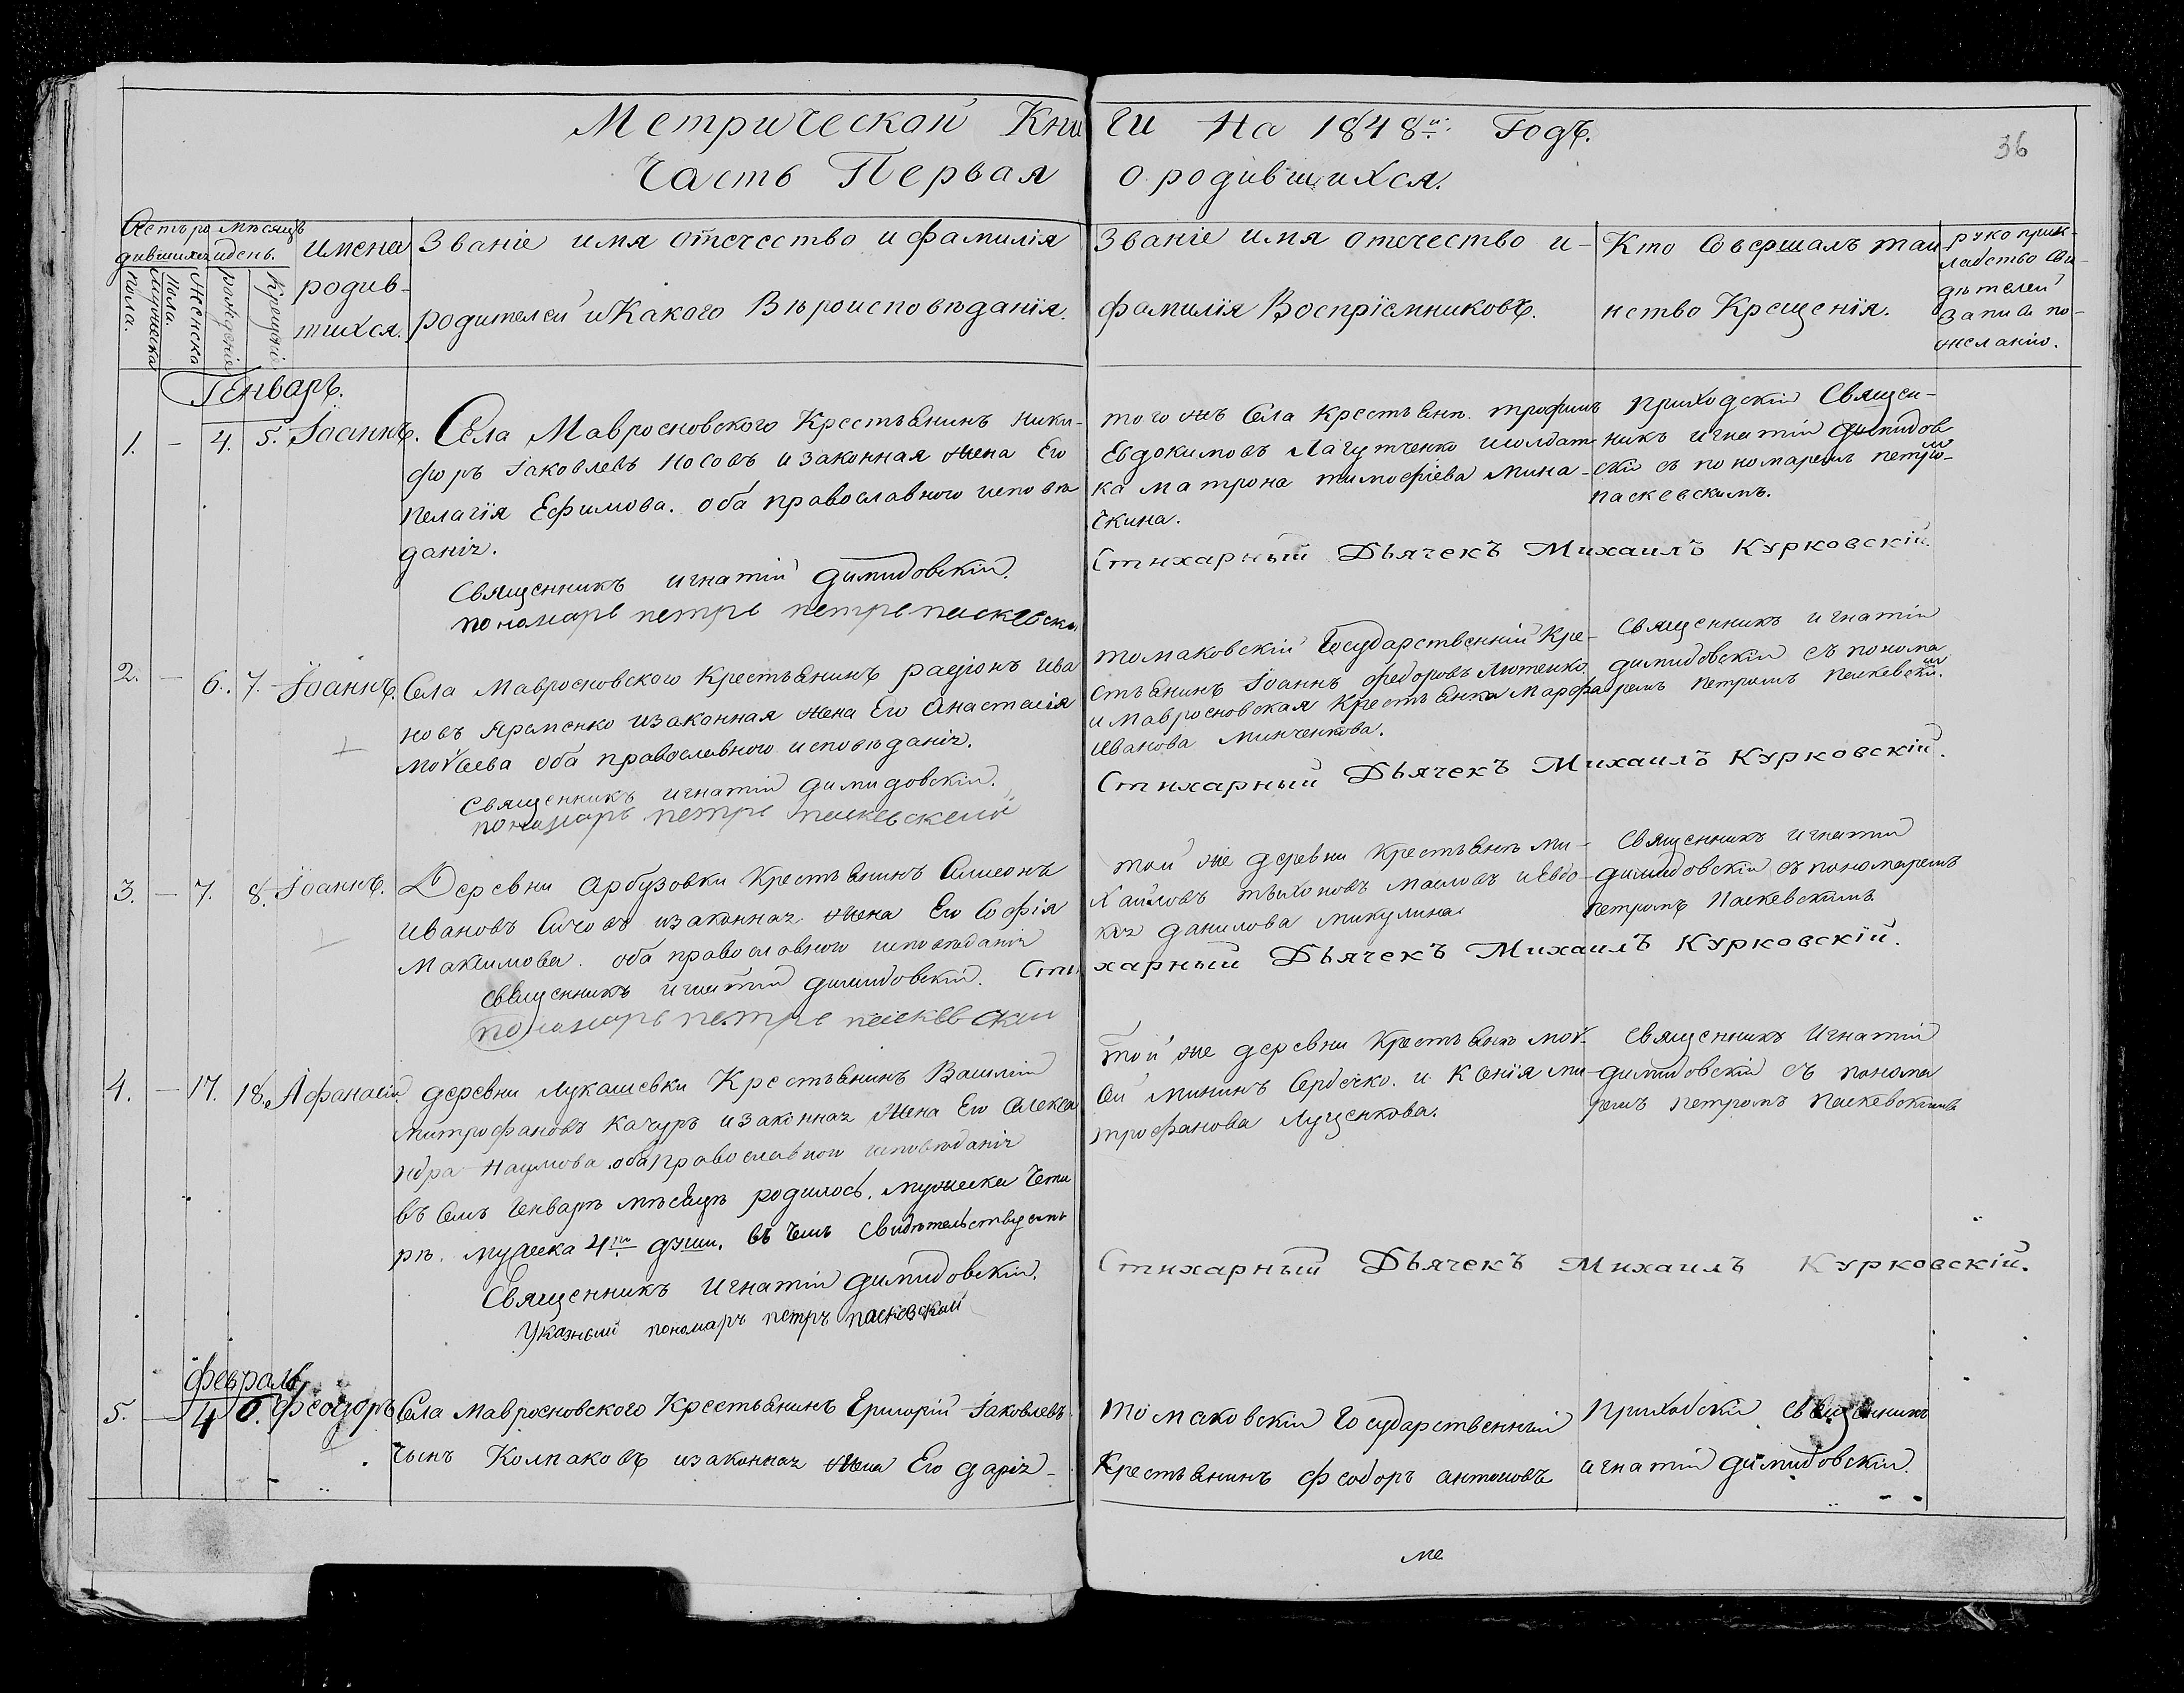 Метрической Книги На 1848й Годъ.
36
Часть Первая о родившихся.
Счетъ родившихся
Мѣсяцъ и день.
Имена родив-
шихся.
Званіе имя отечество и фамилія
родителей и Какого Вѣроисповѣданія.
Званіе имя отечество и-
фамилія Воспріемниковъ.
Кто Совершалъ таи
нство Крещенія.
рукоприк-
ладство сви-
дѣтелей
записи по-
желанію.
Мужеска
пола.
Женска
пола.
рожденіе
Крещеніе
Генварь.
1. - 4. 5. Іоаннъ.
Села Мавросновского Крестьянинъ Ники-
форъ Іаковлевъ Носовъ и законная жена Его
Пелагія Ефимова. оба православного исповѣ
данія.
Священникъ игнатій димидовскій.
пономарь петръ
того жъ Села Крестьянн. трофимъ
Евдокимовъ Лагутченко и солдат-
ка матрона тимофіева Мина-
чкина.
Приходскій Священ-
никъ игнатій димидов
скій съ пономаремъ петро-
паскевскимъ.
Стихарный Дьячекъ Михаилъ Курковскій.
2. - 6. 7. Іоаннъ.
Села Мавросновского Крестьянинъ радіонъ ива
новъ Яременко и законная жена Его Анастасія
Моѵсеева оба православного исповѣданія.
Священникъ игнатій димидовскій.
пономарь петръ паскевскій
томаковскій Государственній Кре-
стьянинъ Іоаннъ федоровъ Лютенко
и мавросновская Крестьянка Марфа
иванова Минченкова.
Священникъ игнатій
димидовскій съ понома
ремъ петромъ паскевским.
Стихарный Дьячекъ Михаилъ Курковскій.
3. - 7. 8. Іоаннъ.
Деревни Арбузовки Крестьянинъ Симеонъ
ивановъ Сичовъ и законная жена Его Софія
Максимова. оба православного исповѣданія
священникъ игнатій димидовскій. Сти
харный Дьячекъ Михаилъ Курковскій.
пономарь петръ паскевскій
той же деревни Крестьянъ ми-
хайловъ тихоновъ масловъ и Евдо-
кия данилова микулина.
Священникъ игнатій
димидовскій съ пономаремъ
петромъ Паскевскимъ.
4. - 17. 18. Афанасій
деревни Лукашевки Крестьянинъ Василій
митрофановъ качуръ и законная жена Его Алекса
ндра Наумова. оба православного исповѣданія
въ семъ Генварѣ мѣсяцѣ родилось. мужеска Четы
ре. мужеска 4ри души. въ чемъ Свидѣтельствуемъ
Священникъ Игнатій димидовскій.
Указный пономарь петръ паскевскій
той же деревни Крестьянъ моѵ-
сей мининъ Сердечко. и Ксенія ми-
трофанова Луценкова.
Священникъ Игнатій
димидовскій съ понома
ремъ петромъ Паскевскимъ
Стихарный Дьячекъ Михаилъ Курковскій.
февраль
5. - 4 6. Феодоръ
Села Мавросновского Крестьянинъ Григорій Іаковлевъ
сынъ Колпаковъ и законная жена Его дарія-
томаковскій Государственный
Крестьянинъ феодоръ антоновъ
Приходскій священникъ
игнатій димидовскій.
ме